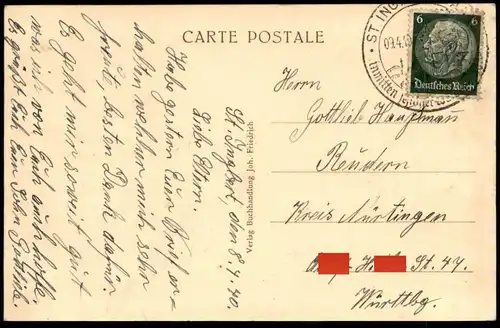 CARTE POSTALE
St. Ingbert, den 8. 4. 40.
Liebe Eltern.
Habe gestern Eur Brief er-
halten welcher mich sehr
freut, besten Dank dafür
Es geht mir soweit gut
was ich von Euch auch hoffe.
Es grüßt Euch Eur Sohn Gottlieb.
Verlag Buchhandlung Joh. Friedrich
ST. ING
09.4.40
inmitten schöner
6 6
Deutsches Reich
Herrn
Gottlieb Hauptman
Reudern
Kreis Nürtingen
St. 47.
Württbg.